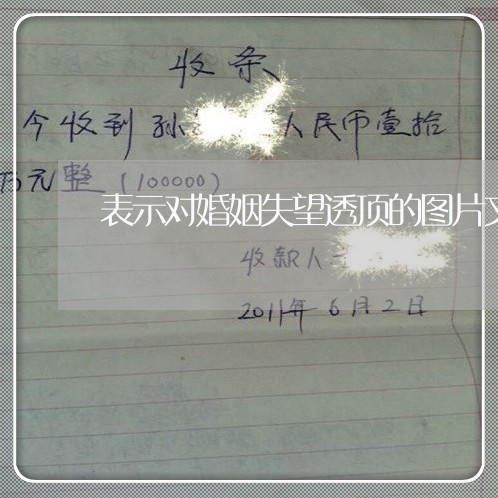 收条
今收到孙 人民币壹拾
万元整（100000）
表示对婚姻失望透顶的图片文
收款人
2011年6月2日